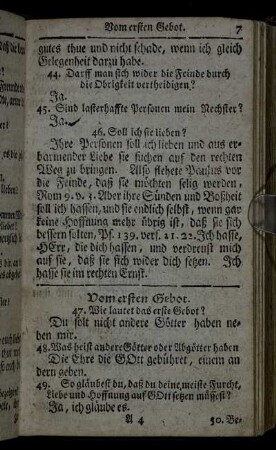 Vom ersten Gebot. 7
gutes thue und nicht schade, wenn ich gleich
Gelegenheit darzu habe.
44. Darff man sich wider die Feinde durch
die Obrigkeit vertheidigen?
Ja.
45. Sind lasterhaffte Personen mein Nechster?
Ja.
46. Soll ich sie lieben?
Ihre Personen soll ich lieben und aus er-
barmender Liebe sie suchen auf den rechten
Weg zu bringen. Also flehete Paulus vor
die Feinde, daß sie möchten selig werden,
Rom 9. v. 3. Aber ihre Sünden und Boßheit
soll ich hassen, und sie endlich selbst, wenn gar
keine Hoffnung mehr übrig ist, daß sie sich
bessern solten, Ps. 139. vers. 21. 22. Ich hasse,
HErr, die dich hassen, und verdreust mich
auf sie, daß sie sich wider dich setzen. Ich
hasse sie im rechten Ernst.
Vom ersten Gebot.
47. Wie lautet das erste Gebot?
Du solt nicht andere Götter haben ne-
ben mir.
48. Was heist andere Götter oder Abgötter haben
Die Ehre die GOtt gebühret, einem an
dern geben.
49. So gläubest du, daß du deine meiste Furcht,
Liebe und Hoffnung auf GOtt setzen müssest?
Ja, ich gläube es.
A 4 50. Be-